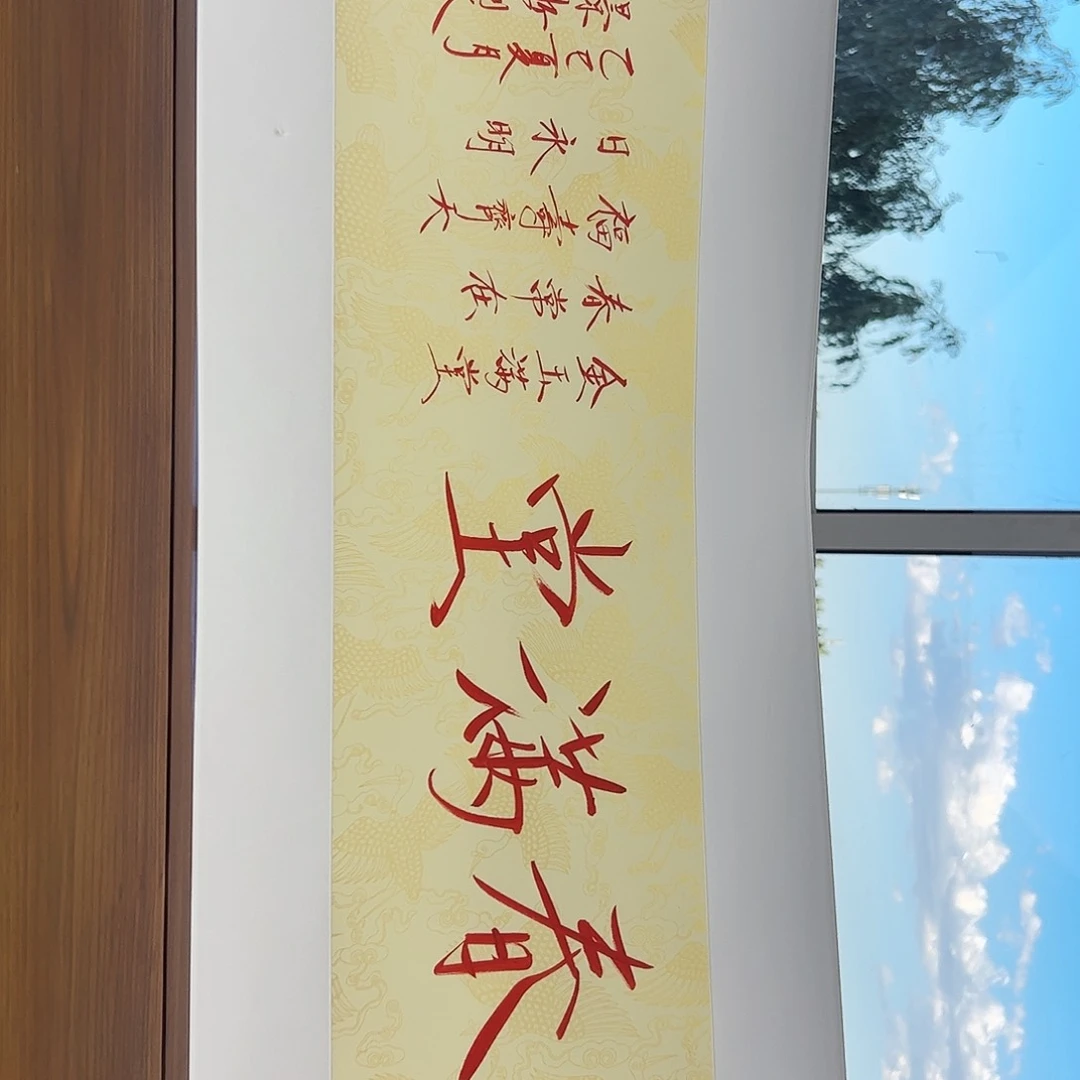 春满堂
金玉满堂
春常在
福寿齊天
日永明
乙巳夏月